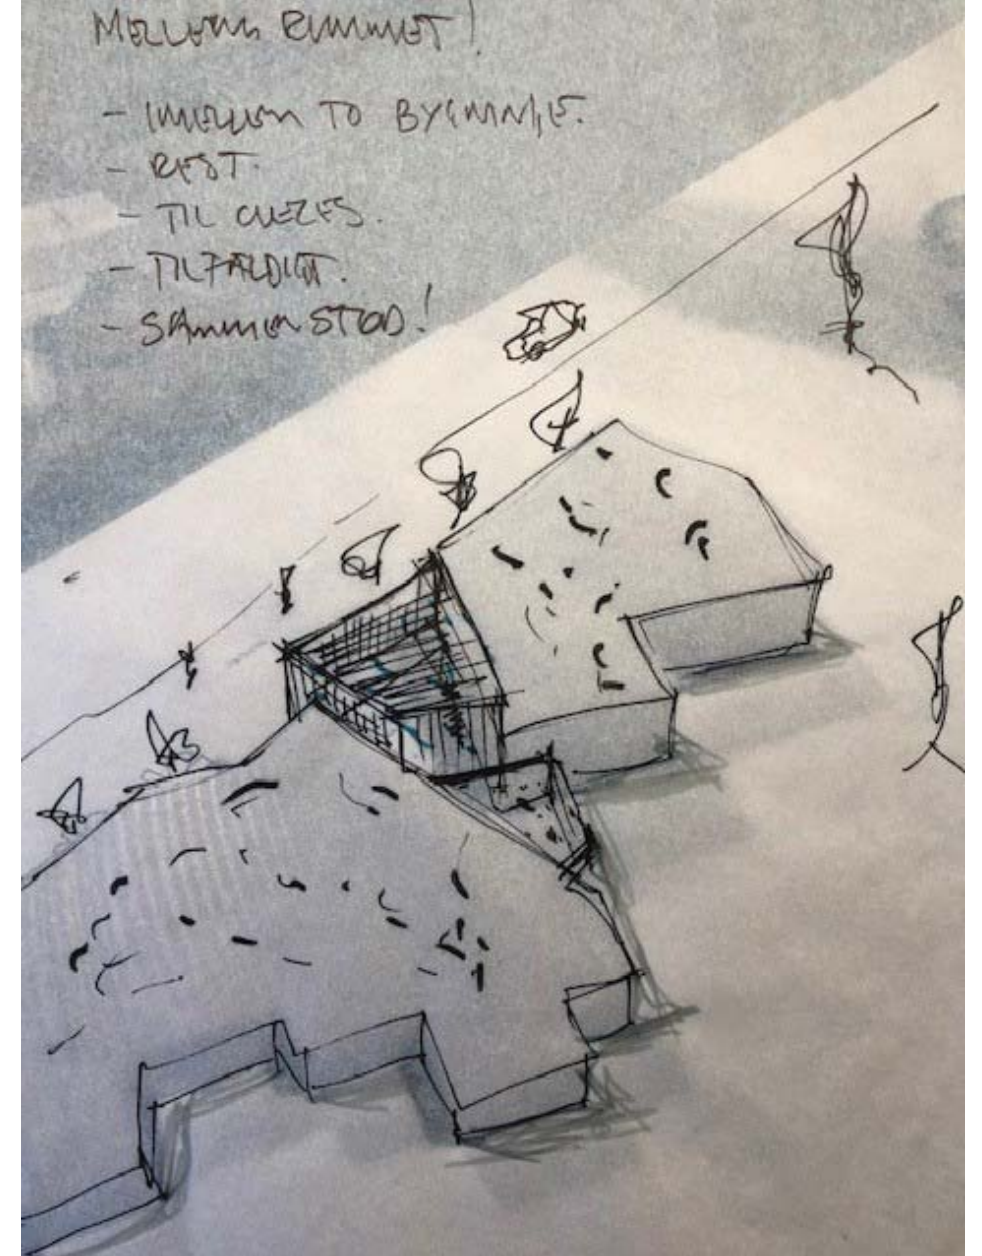 MELLEM RUMMET!
- IMELLEM TO BYGNINGE.
- REST.
- TIL OVERS.
- TILFÆLDIGT.
- SAMMENSTØD!